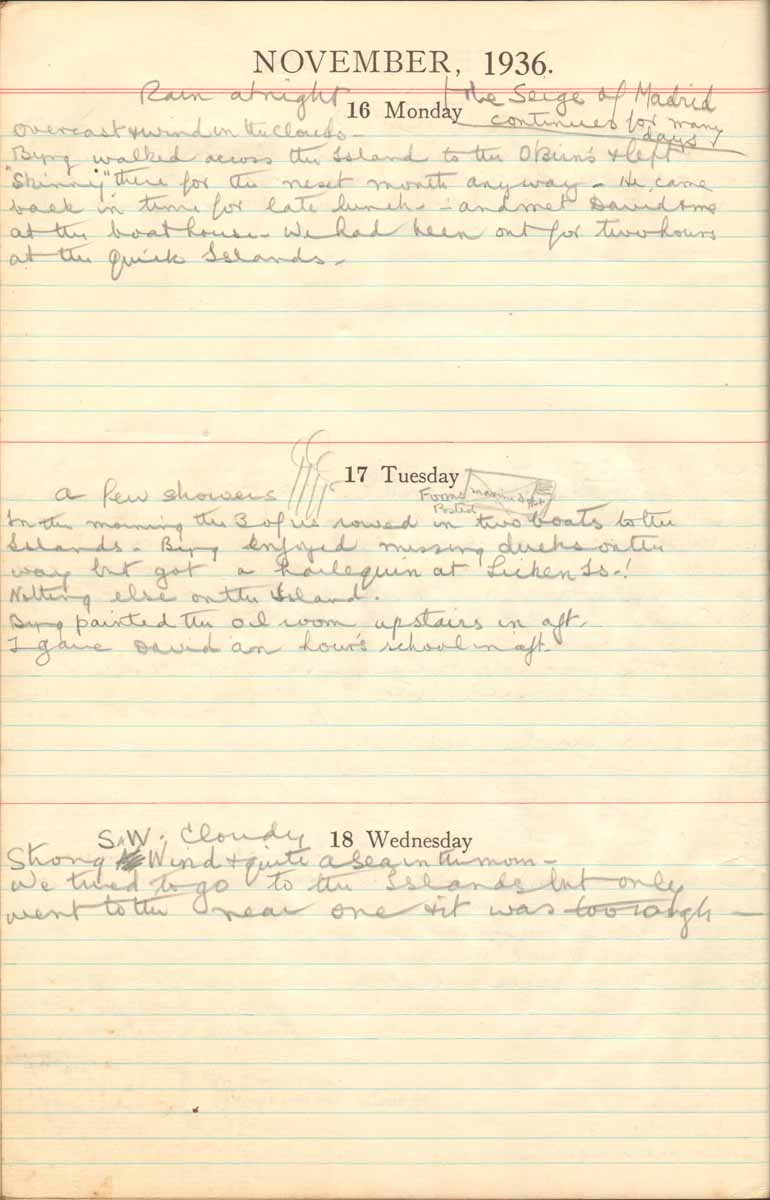 NOVEMBER, 1936.
Rain at night
16 Monday
the Seige of Madrid
continues for many
days
Overcast & wind in the clouds -
Byng walked across the Island to the O'Brien's & left
"Skinny" there for the next month anyway - He came
back in time for late lunch - and met David & me
at the boathouse - We had been out for two hours
at the quick Islands -
17 Tuesday
a few showers
Forms
Posted
In the morning the 3 of us rowed in two boats to the
Islands - Byng enjoyed missing ducks on the
way but got a Harlequin at Lichen Is -!
Nothing else on the Island.
Byng painted the oil room upstairs in aft.
I gave David an hour's school in aft.
18 Wednesday
S.W. Cloudy
Strong Wind & quite a sea in the morn -
We tried to go to the Islands but only
went to the near one & it was too rough -